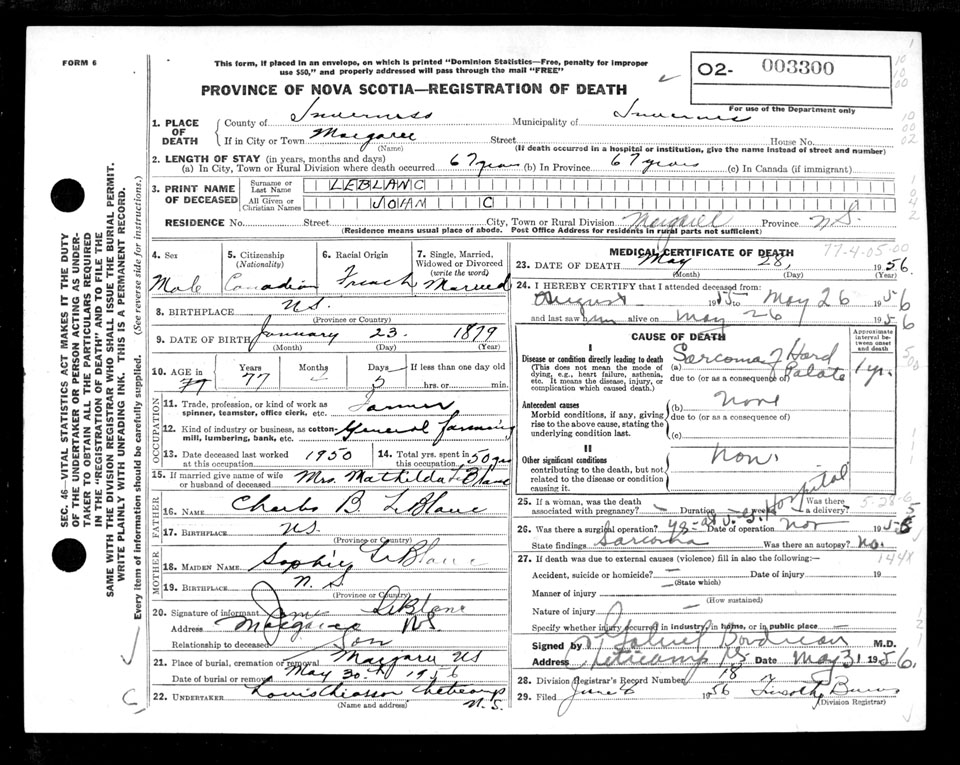 FORM 6
This form, if placed in an envelope, on which is printed "Dominion Statistics—Free, penalty for improper
use $50," and properly addressed will pass through the mail "FREE"
O2- 003300
For use of the Department only
PROVINCE OF NOVA SCOTIA—REGISTRATION OF DEATH
1. PLACE OF DEATH
County of Inverness Municipality of Inverness
If in City or Town Margaree Street House No.
(Name) (If death occurred in a hospital or institution, give the name instead of street and number)
2. LENGTH OF STAY (in years, months and days)
(a) In City, Town or Rural Division where death occurred 67 years (b) In Province 67 years (c) In Canada (if immigrant)
3. PRINT NAME OF DECEASED
Surname or Last Name LEBLANC
All Given or Christian Names JOHN C
RESIDENCE No. Street City, Town or Rural Division Margaree Province N.S.
(Residence means usual place of abode. Post Office Address for residents in rural parts not sufficient)
4. Sex
Male
5. Citizenship (Nationality)
Canadian
6. Racial Origin
French
7. Single, Married, Widowed or Divorced (write the word)
Married
8. BIRTHPLACE N.S.
(Province or Country)
9. DATE OF BIRTH January 23. 1879
(Month) (Day) (Year)
10. AGE in Years 77 Months Days 5 If less than one day old
hrs. or min.
OCCUPATION
11. Trade, profession, or kind of work as
spinner, teamster, office clerk, etc. Farmer
12. Kind of industry or business, as cotton-
mill, lumbering, bank, etc. General farming
13. Date deceased last worked at this occupation 1950
14. Total yrs. spent in this occupation 50 yrs
15. If married give name of wife or husband of deceased Mrs. Mathilda LeBlanc
FATHER
16. NAME Charles B LeBlanc
17. BIRTHPLACE N.S.
(Province or Country)
MOTHER
18. MAIDEN NAME Sophie LeBlanc
19. BIRTHPLACE N.S
(Province or Country)
20. Signature of informant LeBlanc
Address Margaree N.S.
Relationship to deceased Son
21. Place of burial, cremation or removal Margaree NS
Date of burial or removal May 30th 1956
22. UNDERTAKER Louis Chiasson Cheticamp
(Name and address) N.S.
MEDICAL CERTIFICATE OF DEATH
77-4-05-00
23. DATE OF DEATH May 28, 1956
(Month) (Day) (Year)
24. I HEREBY CERTIFY that I attended deceased from:
August 1955 to May 26 1956
and last saw him alive on May 26 1956
CAUSE OF DEATH
Approximate interval between onset and death
I
Disease or condition directly leading to death
(This does not mean the mode of dying, e.g., heart failure, asthenia, etc. It means the disease, injury, or complication which caused death.)
(a) Sarcoma of Hard Palate 1 yr.
due to (or as a consequence of)
Antecedent causes
Morbid conditions, if any, giving rise to the above cause, stating the underlying condition last.
(b) None
due to (or as a consequence of)
(c)
II
Other significant conditions
contributing to the death, but not related to the disease or condition causing it.
None
25. If a woman, was the death associated with pregnancy? Duration weeks Was there a delivery?
5-28-6
26. Was there a surgical operation? yes Hospital Date of operation Nov 1955
State findings Sarcoma Was there an autopsy? No.
27. If death was due to external causes (violence) fill in also the following:— 144X
Accident, suicide or homicide? Date of injury 19
(State which)
Manner of injury
(How sustained)
Nature of injury
Specify whether injury occurred in industry, in home, or in public place
Signed by Boudreau M.D.
Address Cheticamp NS Date May 31 1956.
28. Division Registrar's Record Number 18
29. Filed June 6 1956
(Division Registrar)
SEC. 46—VITAL STATISTICS ACT MAKES IT THE DUTY
OF THE UNDERTAKER OR PERSON ACTING AS UNDER-
TAKER TO OBTAIN ALL THE PARTICULARS REQUIRED
IN THE "REGISTRATION OF DEATH" AND TO FILE THE
SAME WITH THE DIVISION REGISTRAR WHO SHALL ISSUE THE BURIAL PERMIT.
WRITE PLAINLY WITH UNFADING INK. THIS IS A PERMANENT RECORD.
Every item of information should be carefully supplied. (See reverse side for instructions.)